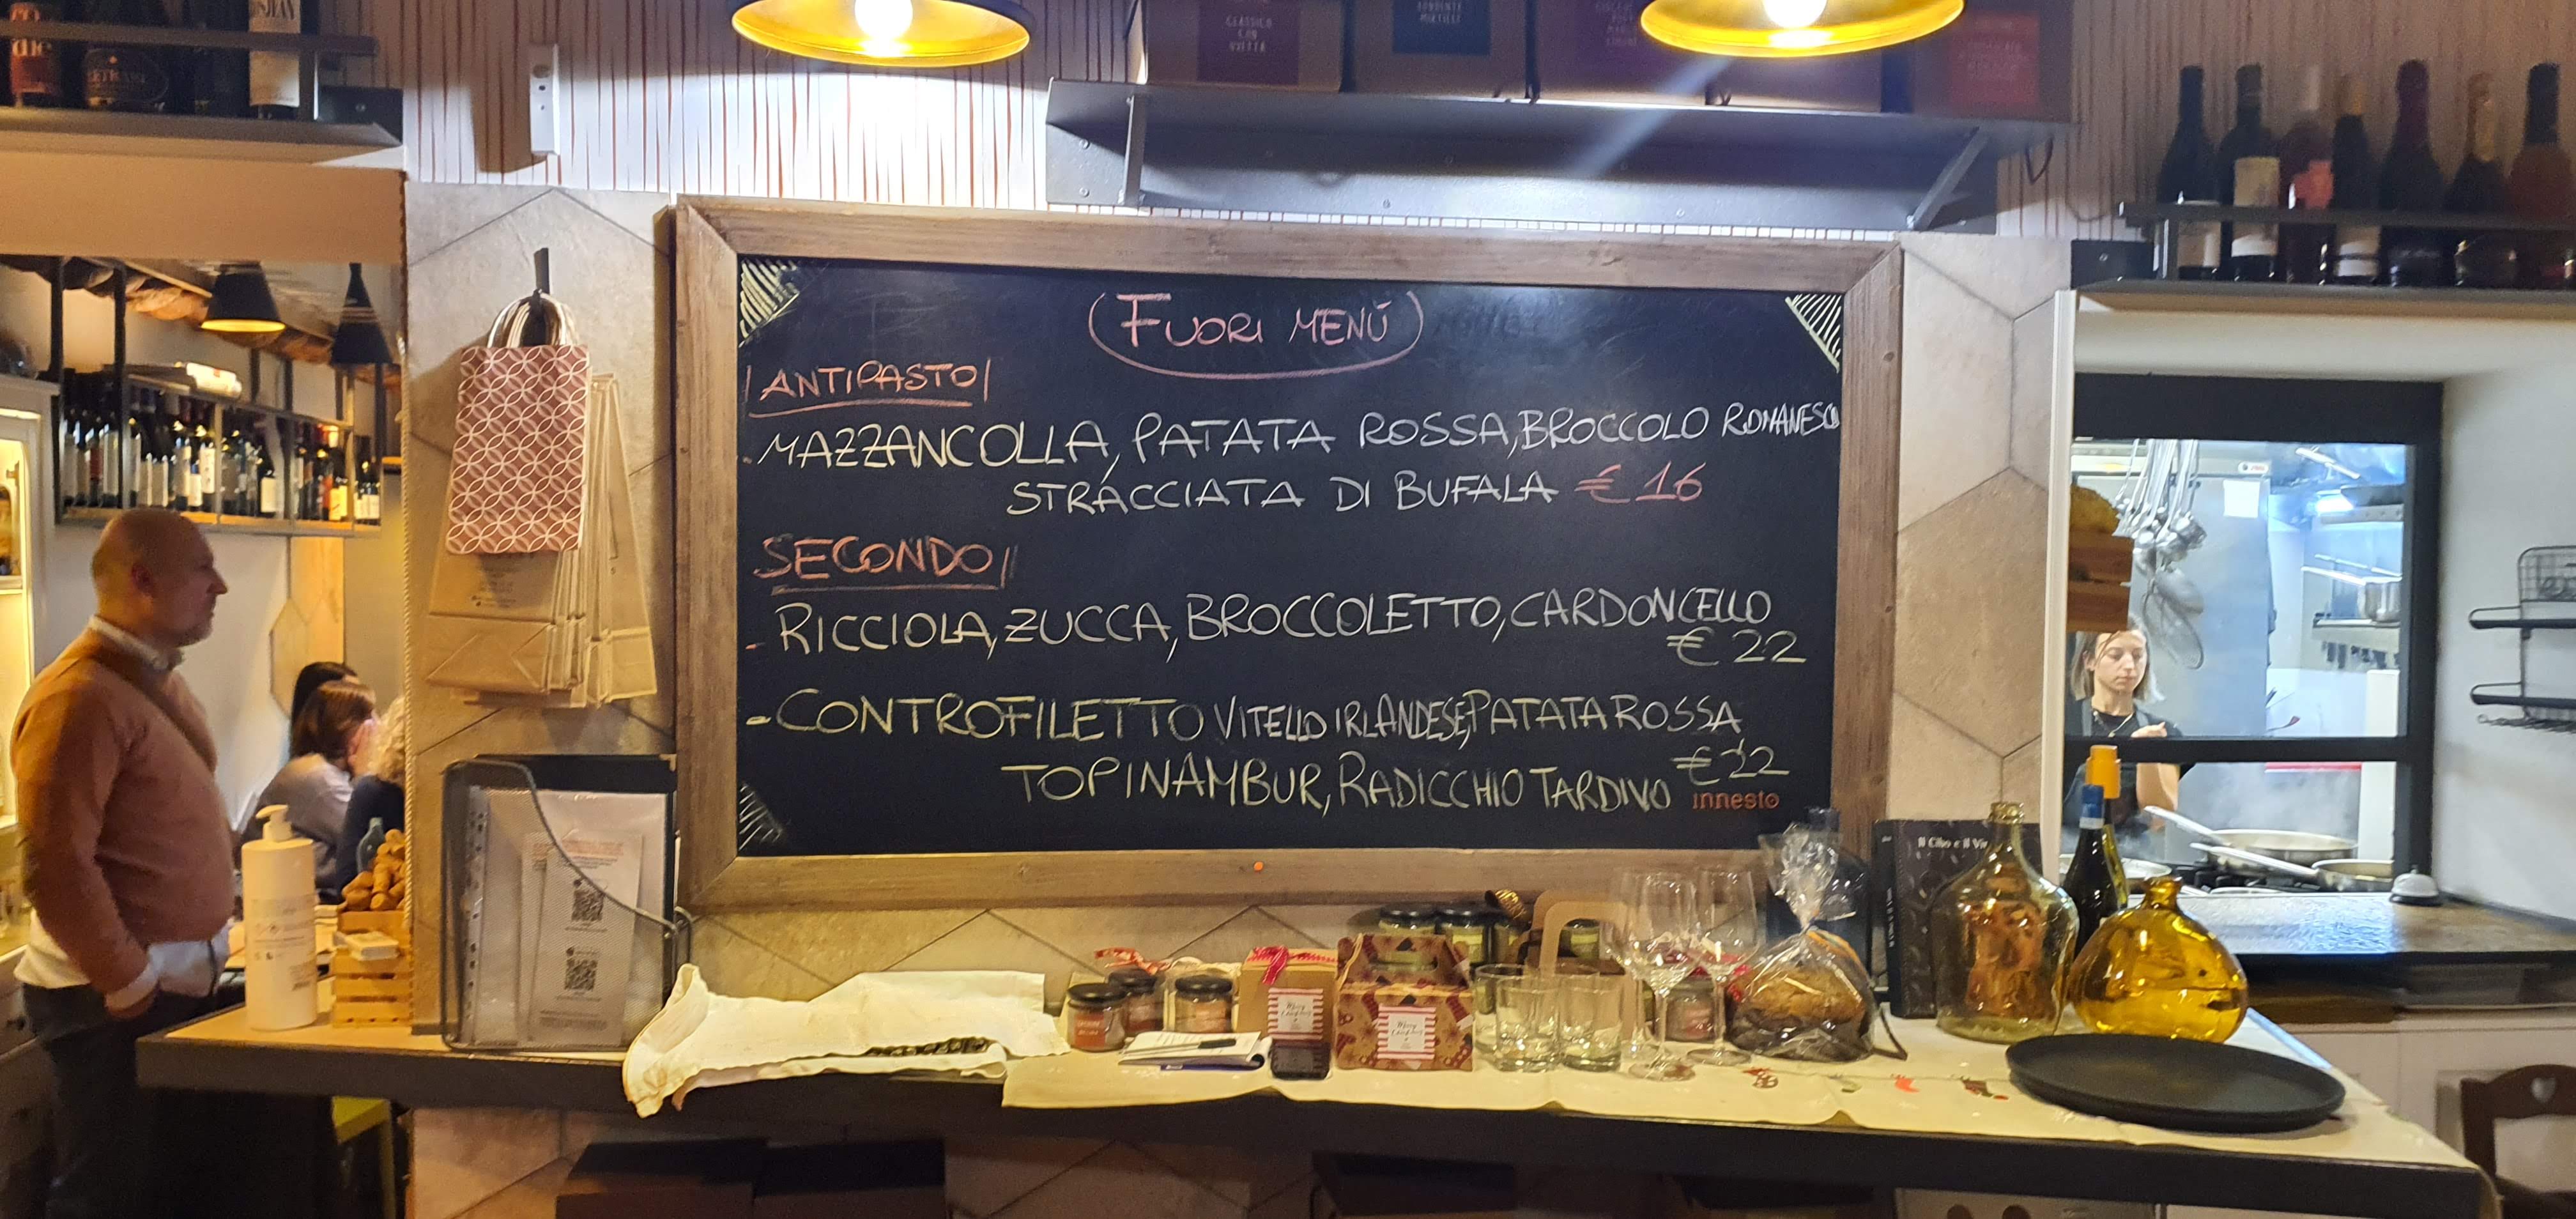 CLASSICO
CON
FUORI MENÙ
ANTIPASTO
MAZZANCOLLA, PATATA ROSSA, BROCCOLO ROMANESCO
STRACCIATA DI BUFALA € 16
SECONDO
- RICCIOLA, ZUCCA, BROCCOLETTO, CARDONCELLO
€ 22
- CONTROFILETTO VITELLO IRLANDESE, PATATA ROSSA
€ 22
TOPINAMBUR, RADICCHIO TARDIVO
innesto
Il Cibo e il
Merry
Christmas